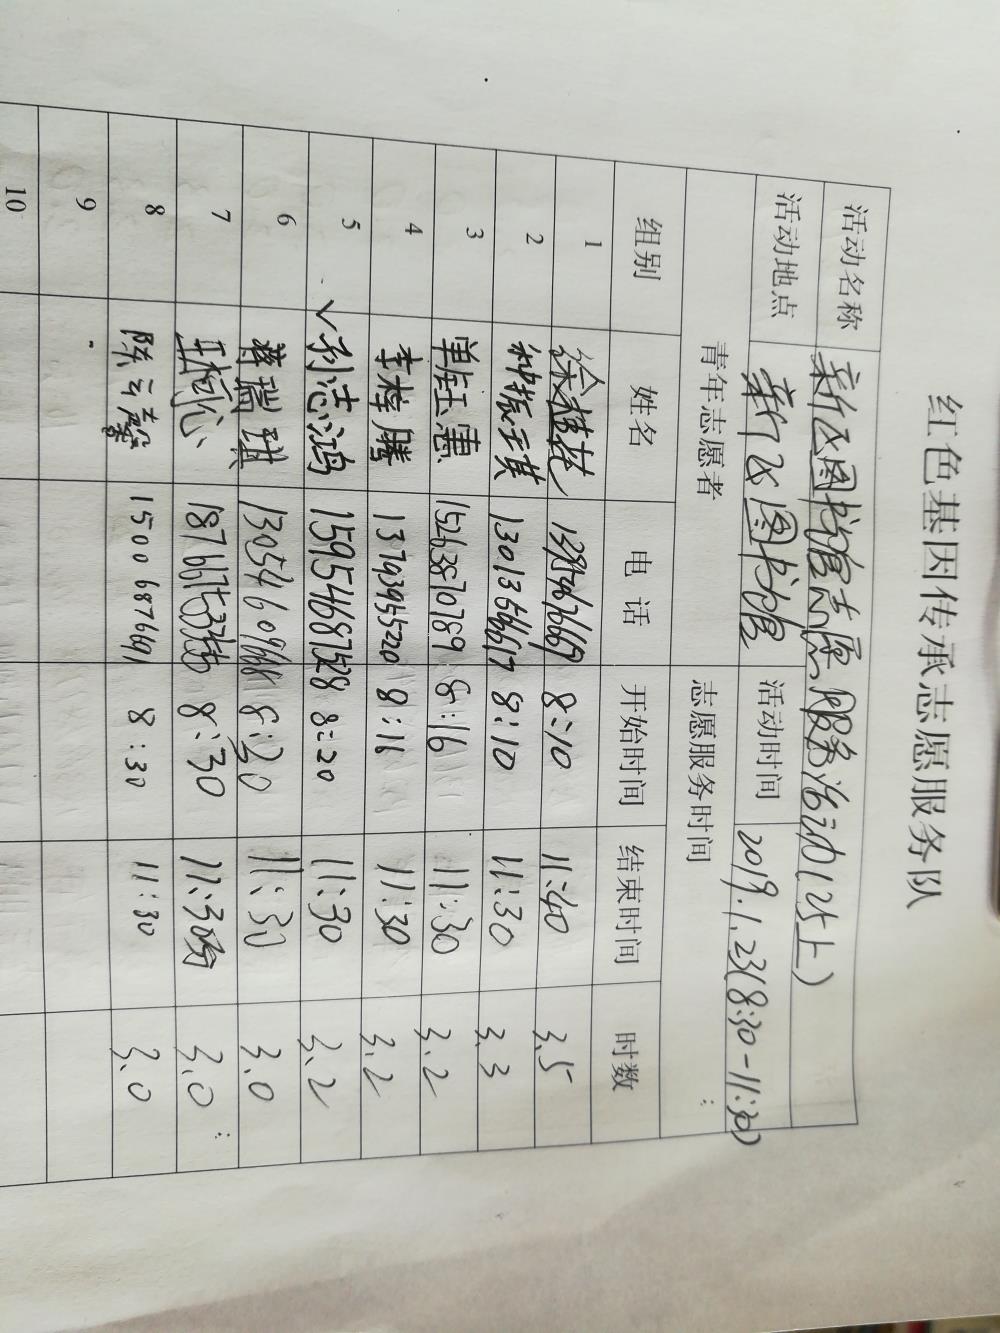 红色基因传承志愿服务队
活动名称 新区图书馆志愿服务活动(25上)
活动地点 新区图书馆 活动时间 2019.1.23(8:30-11:30)
青年志愿者 志愿服务时间
组别 姓名 电话 开始时间 结束时间 时数
1 8:10 11:40 3.5
2 8:10 11:30 3.3
3 单钰惠 15263870789 8:16 11:30 3.2
4 李梓腾 13743945220 8:16 11:30 3.2
5 孙浩鸿 15954687528 8:20 11:30 3.2
6 蒋瑞琪 8:20 11:30 3.0
7 8:30 11:30 3.0
8 陈云馨 15006876491 8:30 11:30 3.0
9
10